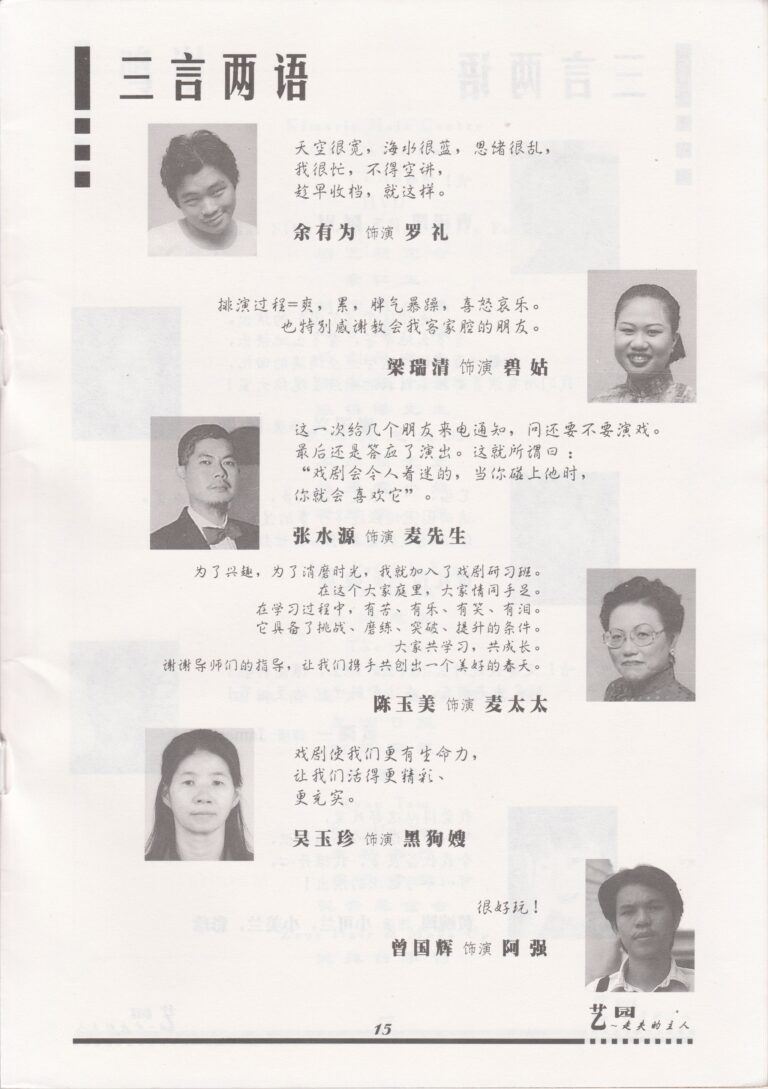 三言两语
天空很宽，海水很蓝，思绪很乱，
我很忙，不得空讲，
趁早收档，就这样。
余有为 饰演 罗礼
排演过程=爽，累，脾气暴躁，喜怒哀乐。
也特别感谢教会我客家腔的朋友。
梁瑞清 饰演 碧姑
这一次给几个朋友来电通知，问还要不要演戏。
最后还是答应了演出。这就所谓曰：
“戏剧会令人着迷的，当你碰上他时，
你就会 喜欢它”。
张水源 饰演 麦先生
为了兴趣，为了消磨时光，我就加入了戏剧研习班。
在这个大家庭里，大家情同手足。
在学习过程中，有苦、有乐、有笑、有泪。
它具备了挑战、磨练、突破、提升的条件。
大家共学习，共成长。
谢谢导师们的指导，让我们携手共创出一个美好的春天。
陈玉美 饰演 麦太太
戏剧使我们更有生命力，
让我们活得更精彩、
更充实。
吴玉珍 饰演 黑狗嫂
很好玩！
曾国辉 饰演 阿强
15
艺园
～走失的主人